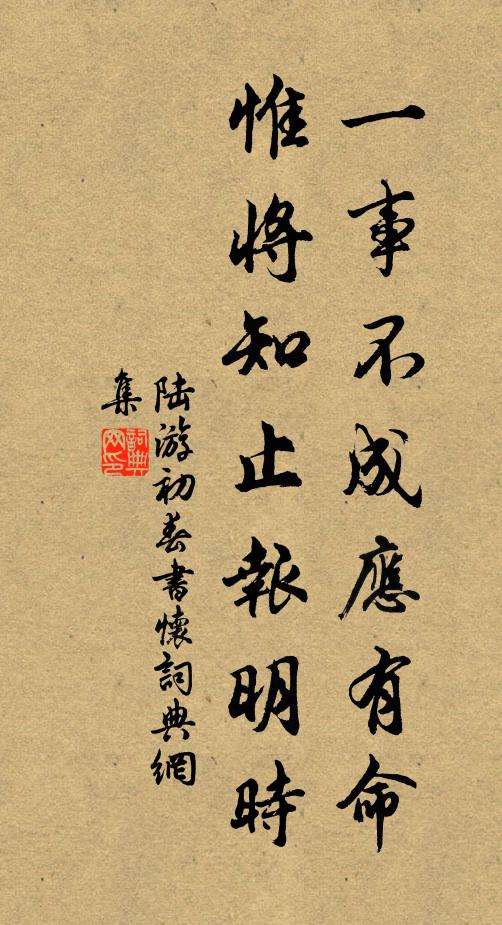 一事不成應有命
惟將知止報明時
陆游初春書懷詞典網
集
詞典
网印